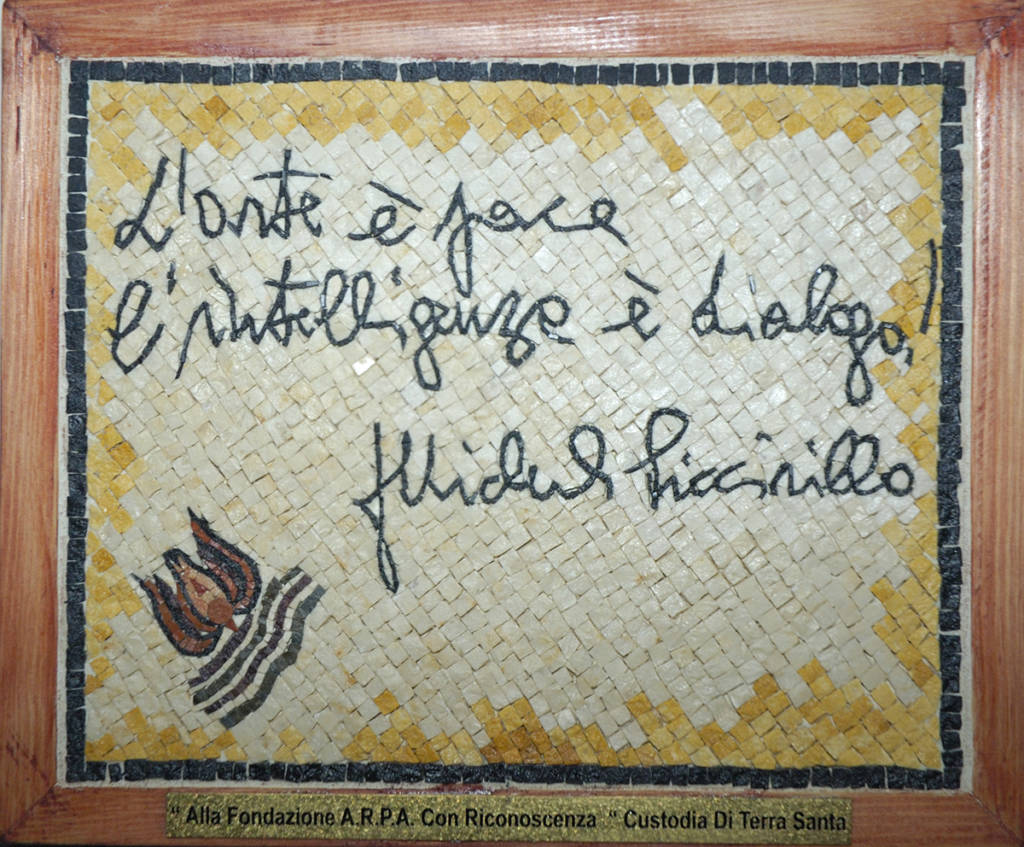 L'arte è pace
l'intelligenza è dialogo!
Michele Piccirillo
“ Alla Fondazione A.R.P.A. Con Riconoscenza “ Custodia Di Terra Santa